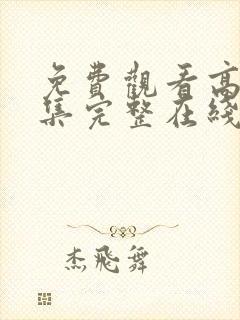 免費觀看高
集完整在綫
杰飛舞